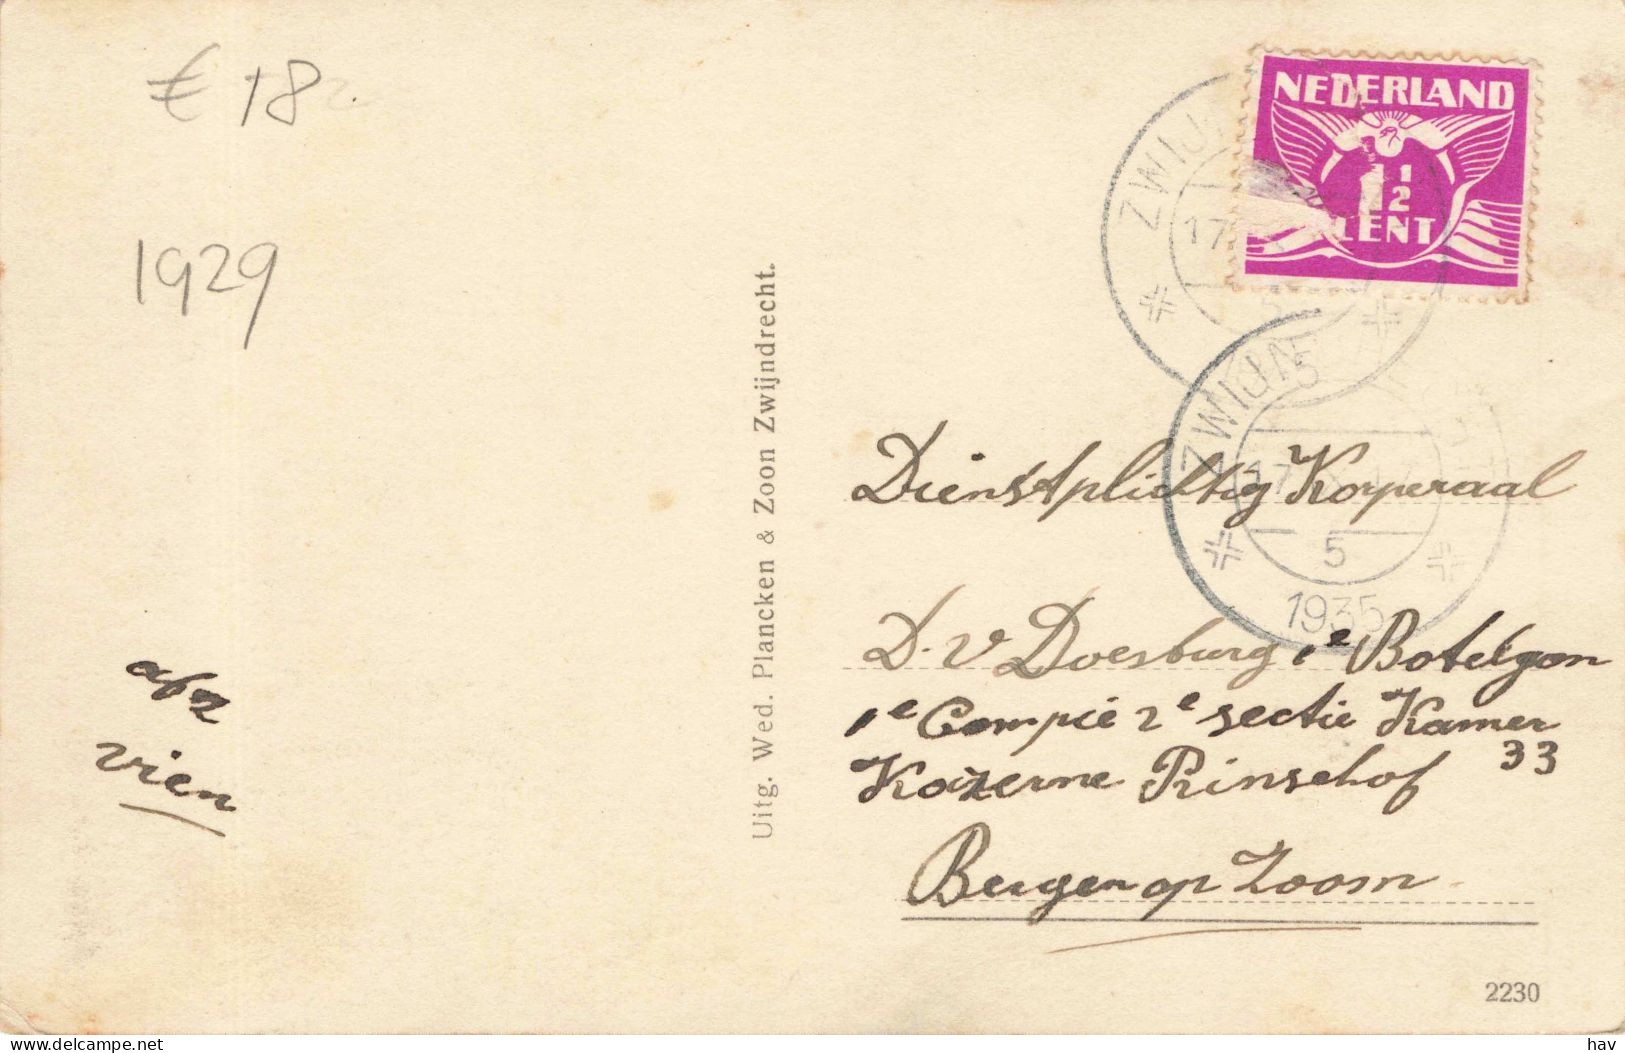 € 18
1929
afz
Vien
Uitg. Wed. Plancken & Zoon Zwijndrecht.
NEDERLAND
1 1/2
CENT
ZWIJN
17
5
ZWIJN
17
5
1935
Dienstplichtig Korperaal
D. v Doesburg 1e Batelgon
1e Compie 2e sectie Kamer
33
Kazerne Prinsehof
Bergen op Zoom
2230
delcampe.net
hav